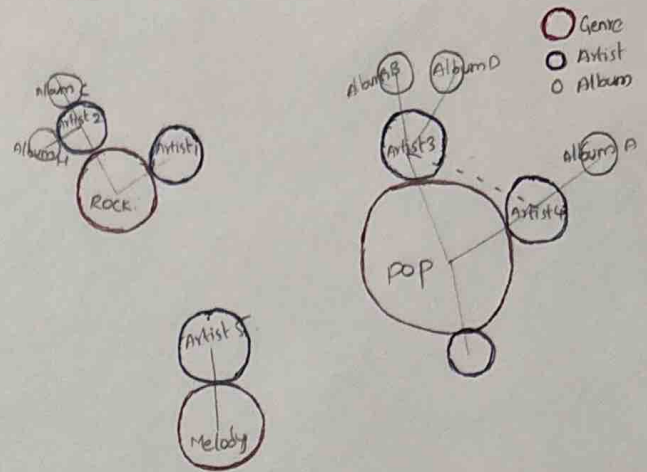 Genre
Artist
Album
Album C
Artist 2
Album H
Artist 1
ROCK
Album B
Album D
Artist 3
Album A
Artist 4
POP
Artist 5
Melody